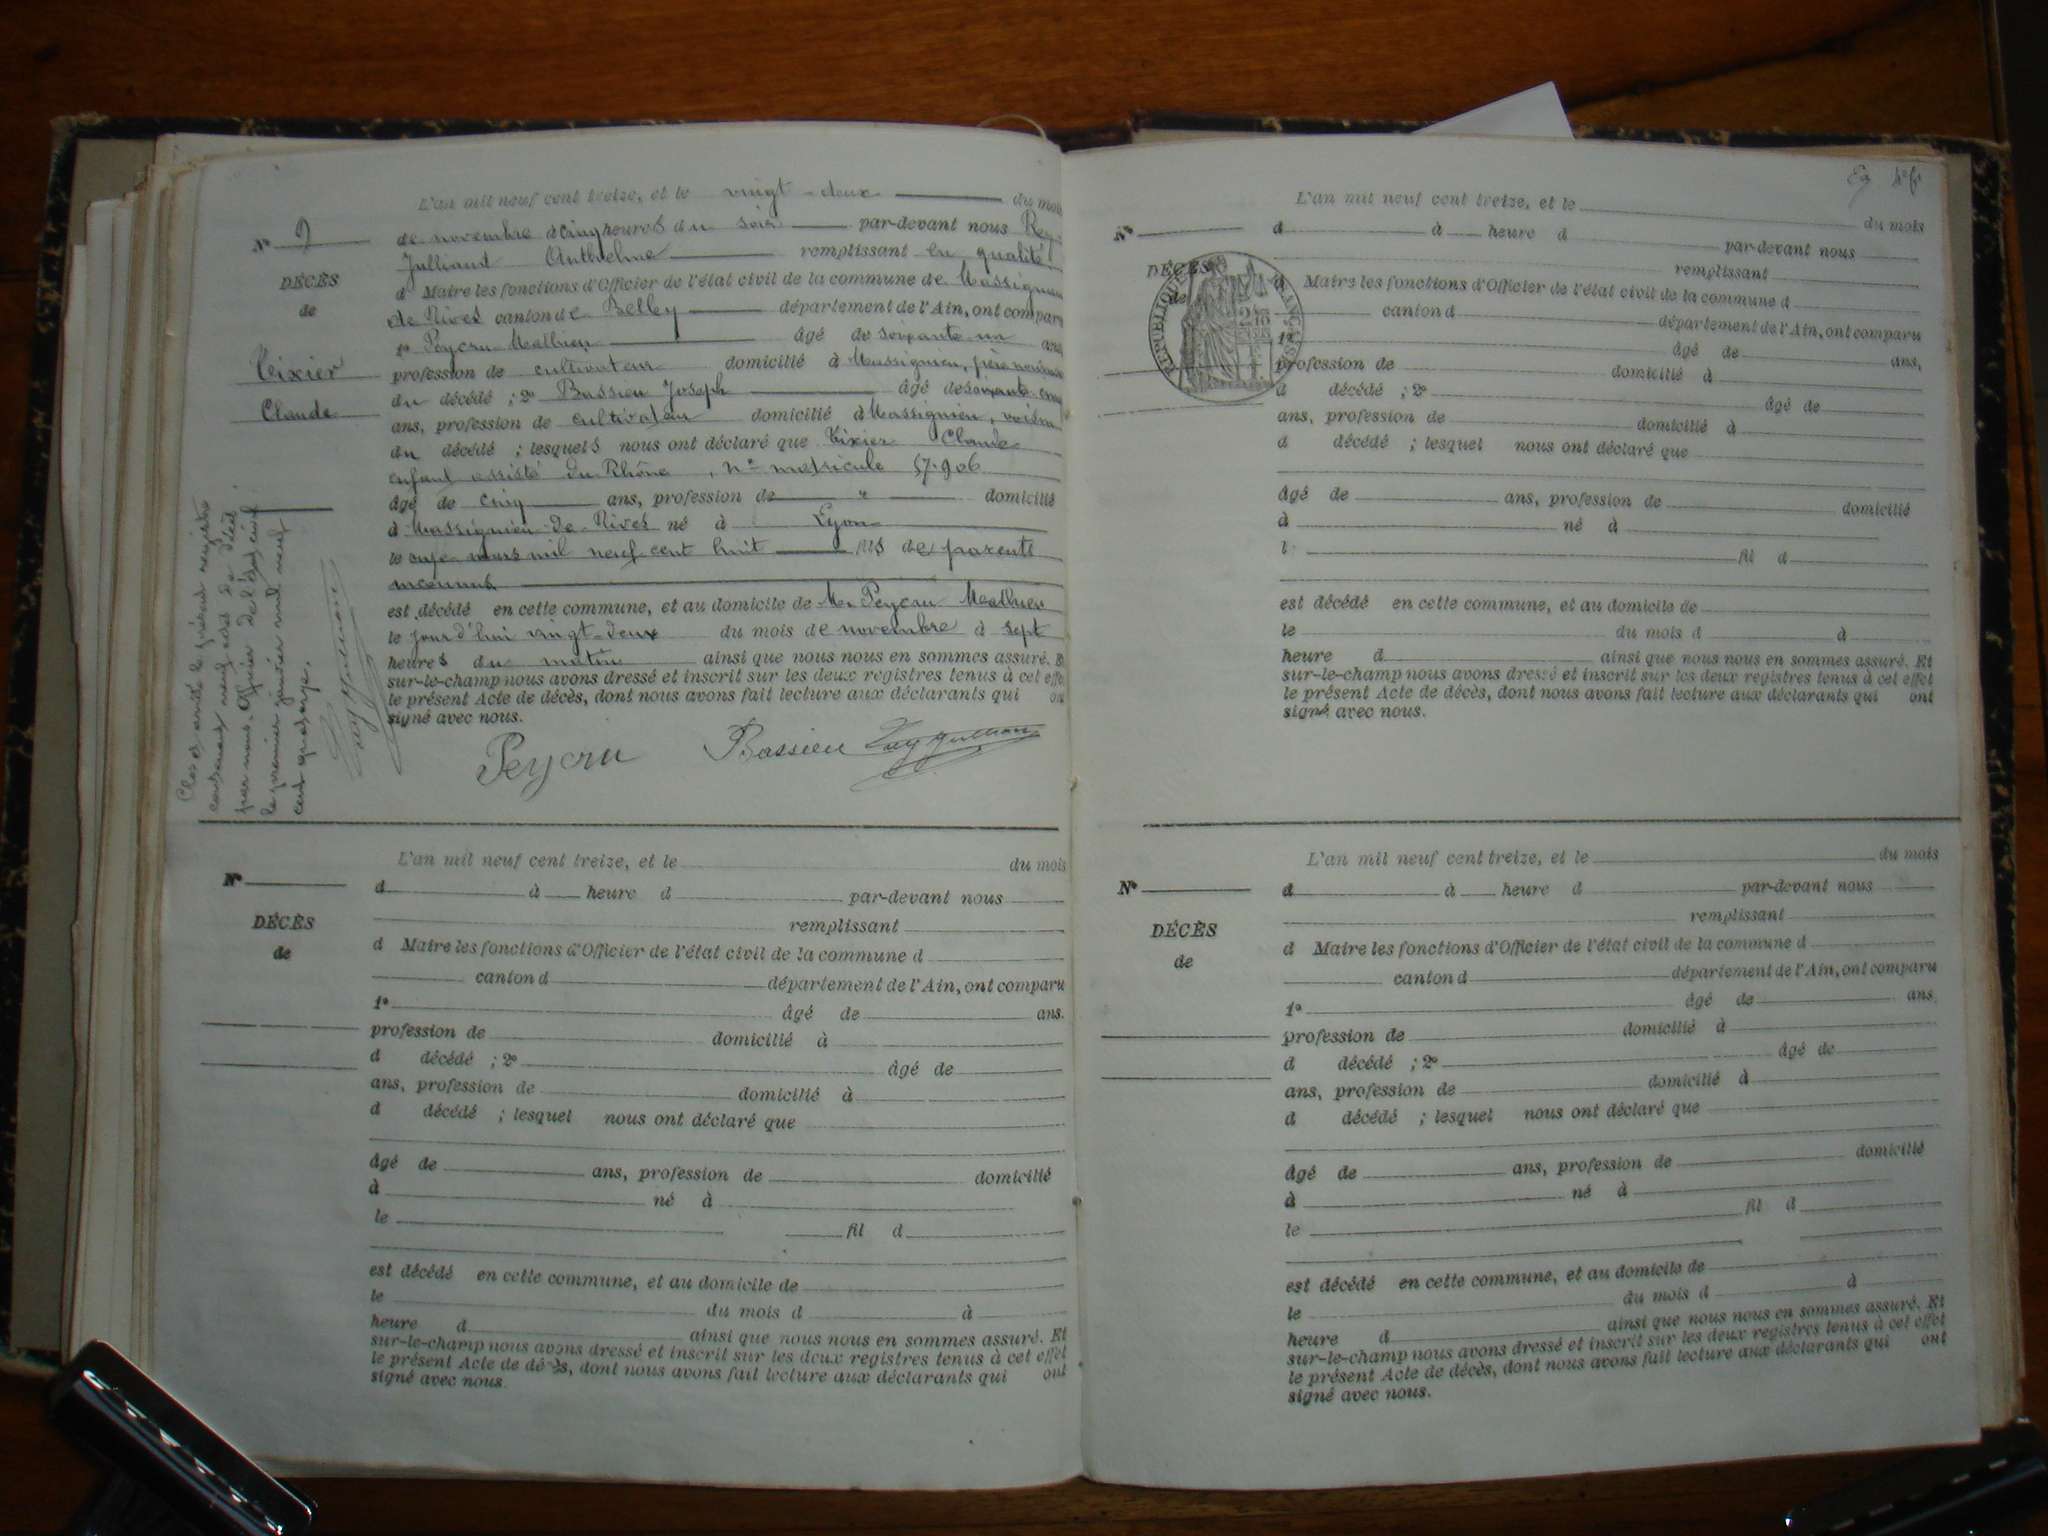 L'an mil neuf cent treize, et le vingt-deux du mois
N° 9
de novembre à cinq heures du soir par-devant nous Rey
Julliand Anthelme remplissant en qualité
DÉCÈS
d Maire les fonctions d'Officier de l'état civil de la commune de Massignieu
de
de Rives canton de Belley département de l'Ain, ont comparu
1° Peycru Mathieu âgé de soixante un ans
Tixier
profession de cultivateur domicilié à Massignieu, père nourricier
du décédé ; 2° Bassieu Joseph âgé de soixante cinq
Claude
ans, profession de cultivateur domicilié à Massignieu, voisin
du décédé ; lesquels nous ont déclaré que Tixier Claude
enfant assisté du Rhône, n° matricule 57.906
âgé de cinq ans, profession de " domicilié
à Massignieu-de-Rives né à Lyon
le onze mars mil neuf cent huit fils de parents
inconnus
est décédé en cette commune, et au domicile de Mr Peycru Mathieu
le jour d'hui vingt-deux du mois de novembre à sept
heures du matin ainsi que nous nous en sommes assuré. Et
sur-le-champ nous avons dressé et inscrit sur les deux registres tenus à cet effet
le présent Acte de décès, dont nous avons fait lecture aux déclarants qui ont
signé avec nous.
Peycru Bassieu
Clos et arrêté le présent registre
contenant neuf actes de décès
par nous Officier de l'état civil
le premier janvier mil neuf
cent quatorze.
L'an mil neuf cent treize, et le du mois
N°
d à heure d par-devant nous
remplissant
DÉCÈS
d Maire les fonctions d'Officier de l'état civil de la commune d
de
canton d département de l'Ain, ont comparu
1° âgé de ans.
profession de domicilié à
d décédé ; 2° âgé de
ans, profession de domicilié à
d décédé ; lesquel nous ont déclaré que
âgé de ans, profession de domicilié
à né à
le fil d
est décédé en cette commune, et au domicile de
le du mois d à
heure d ainsi que nous nous en sommes assuré. Et
sur-le-champ nous avons dressé et inscrit sur les deux registres tenus à cet effet
le présent Acte de décès, dont nous avons fait lecture aux déclarants qui ont
signé avec nous.
L'an mil neuf cent treize, et le du mois
N°
d à heure d par-devant nous
remplissant
DÉCÈS
de
RÉPUBLIQUE FRANÇAISE
d Maire les fonctions d'Officier de l'état civil de la commune d
canton d département de l'Ain, ont comparu
1° âgé de ans,
profession de domicilié à
d décédé ; 2° âgé de
ans, profession de domicilié à
d décédé ; lesquel nous ont déclaré que
âgé de ans, profession de domicilié
à né à
l fil d
est décédé en cette commune, et au domicile de
le du mois d à
heure d ainsi que nous nous en sommes assuré. Et
sur-le-champ nous avons dressé et inscrit sur les deux registres tenus à cet effet
le présent Acte de décès, dont nous avons fait lecture aux déclarants qui ont
signé avec nous.
L'an mil neuf cent treize, et le du mois
N°
d à heure d par-devant nous
remplissant
DÉCÈS
d Maire les fonctions d'Officier de l'état civil de la commune d
de
canton d département de l'Ain, ont comparu
1° âgé de ans.
profession de domicilié à
d décédé ; 2° âgé de
ans, profession de domicilié à
d décédé ; lesquel nous ont déclaré que
âgé de ans, profession de domicilié
à né à
le fil d
est décédé en cette commune, et au domicile de
le du mois d à
heure d ainsi que nous nous en sommes assuré. Et
sur-le-champ nous avons dressé et inscrit sur les deux registres tenus à cet effet
le présent Acte de décès, dont nous avons fait lecture aux déclarants qui ont
signé avec nous.